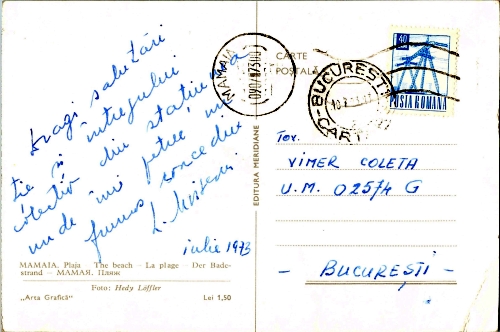 Dragi salutări
ție și întregului
colectiv din stațiunea
unde îmi petrec un
frumos concediu
L.
iulie 1973
MAMAIA. Plaja The beach - La plage - Der Bade-
strand - МАМАЯ. Пляж
Foto: Hedy Löffler
„Arta Grafică" Lei 1,50
EDITURA MERIDIANE
CARTE
POȘTALĂ
MAMAIA
BUCUREȘTI
CART
40
POSTA ROMANA
Tov.
VIMER COLETA
U.M. 02574 G
- BUCUREȘTI -